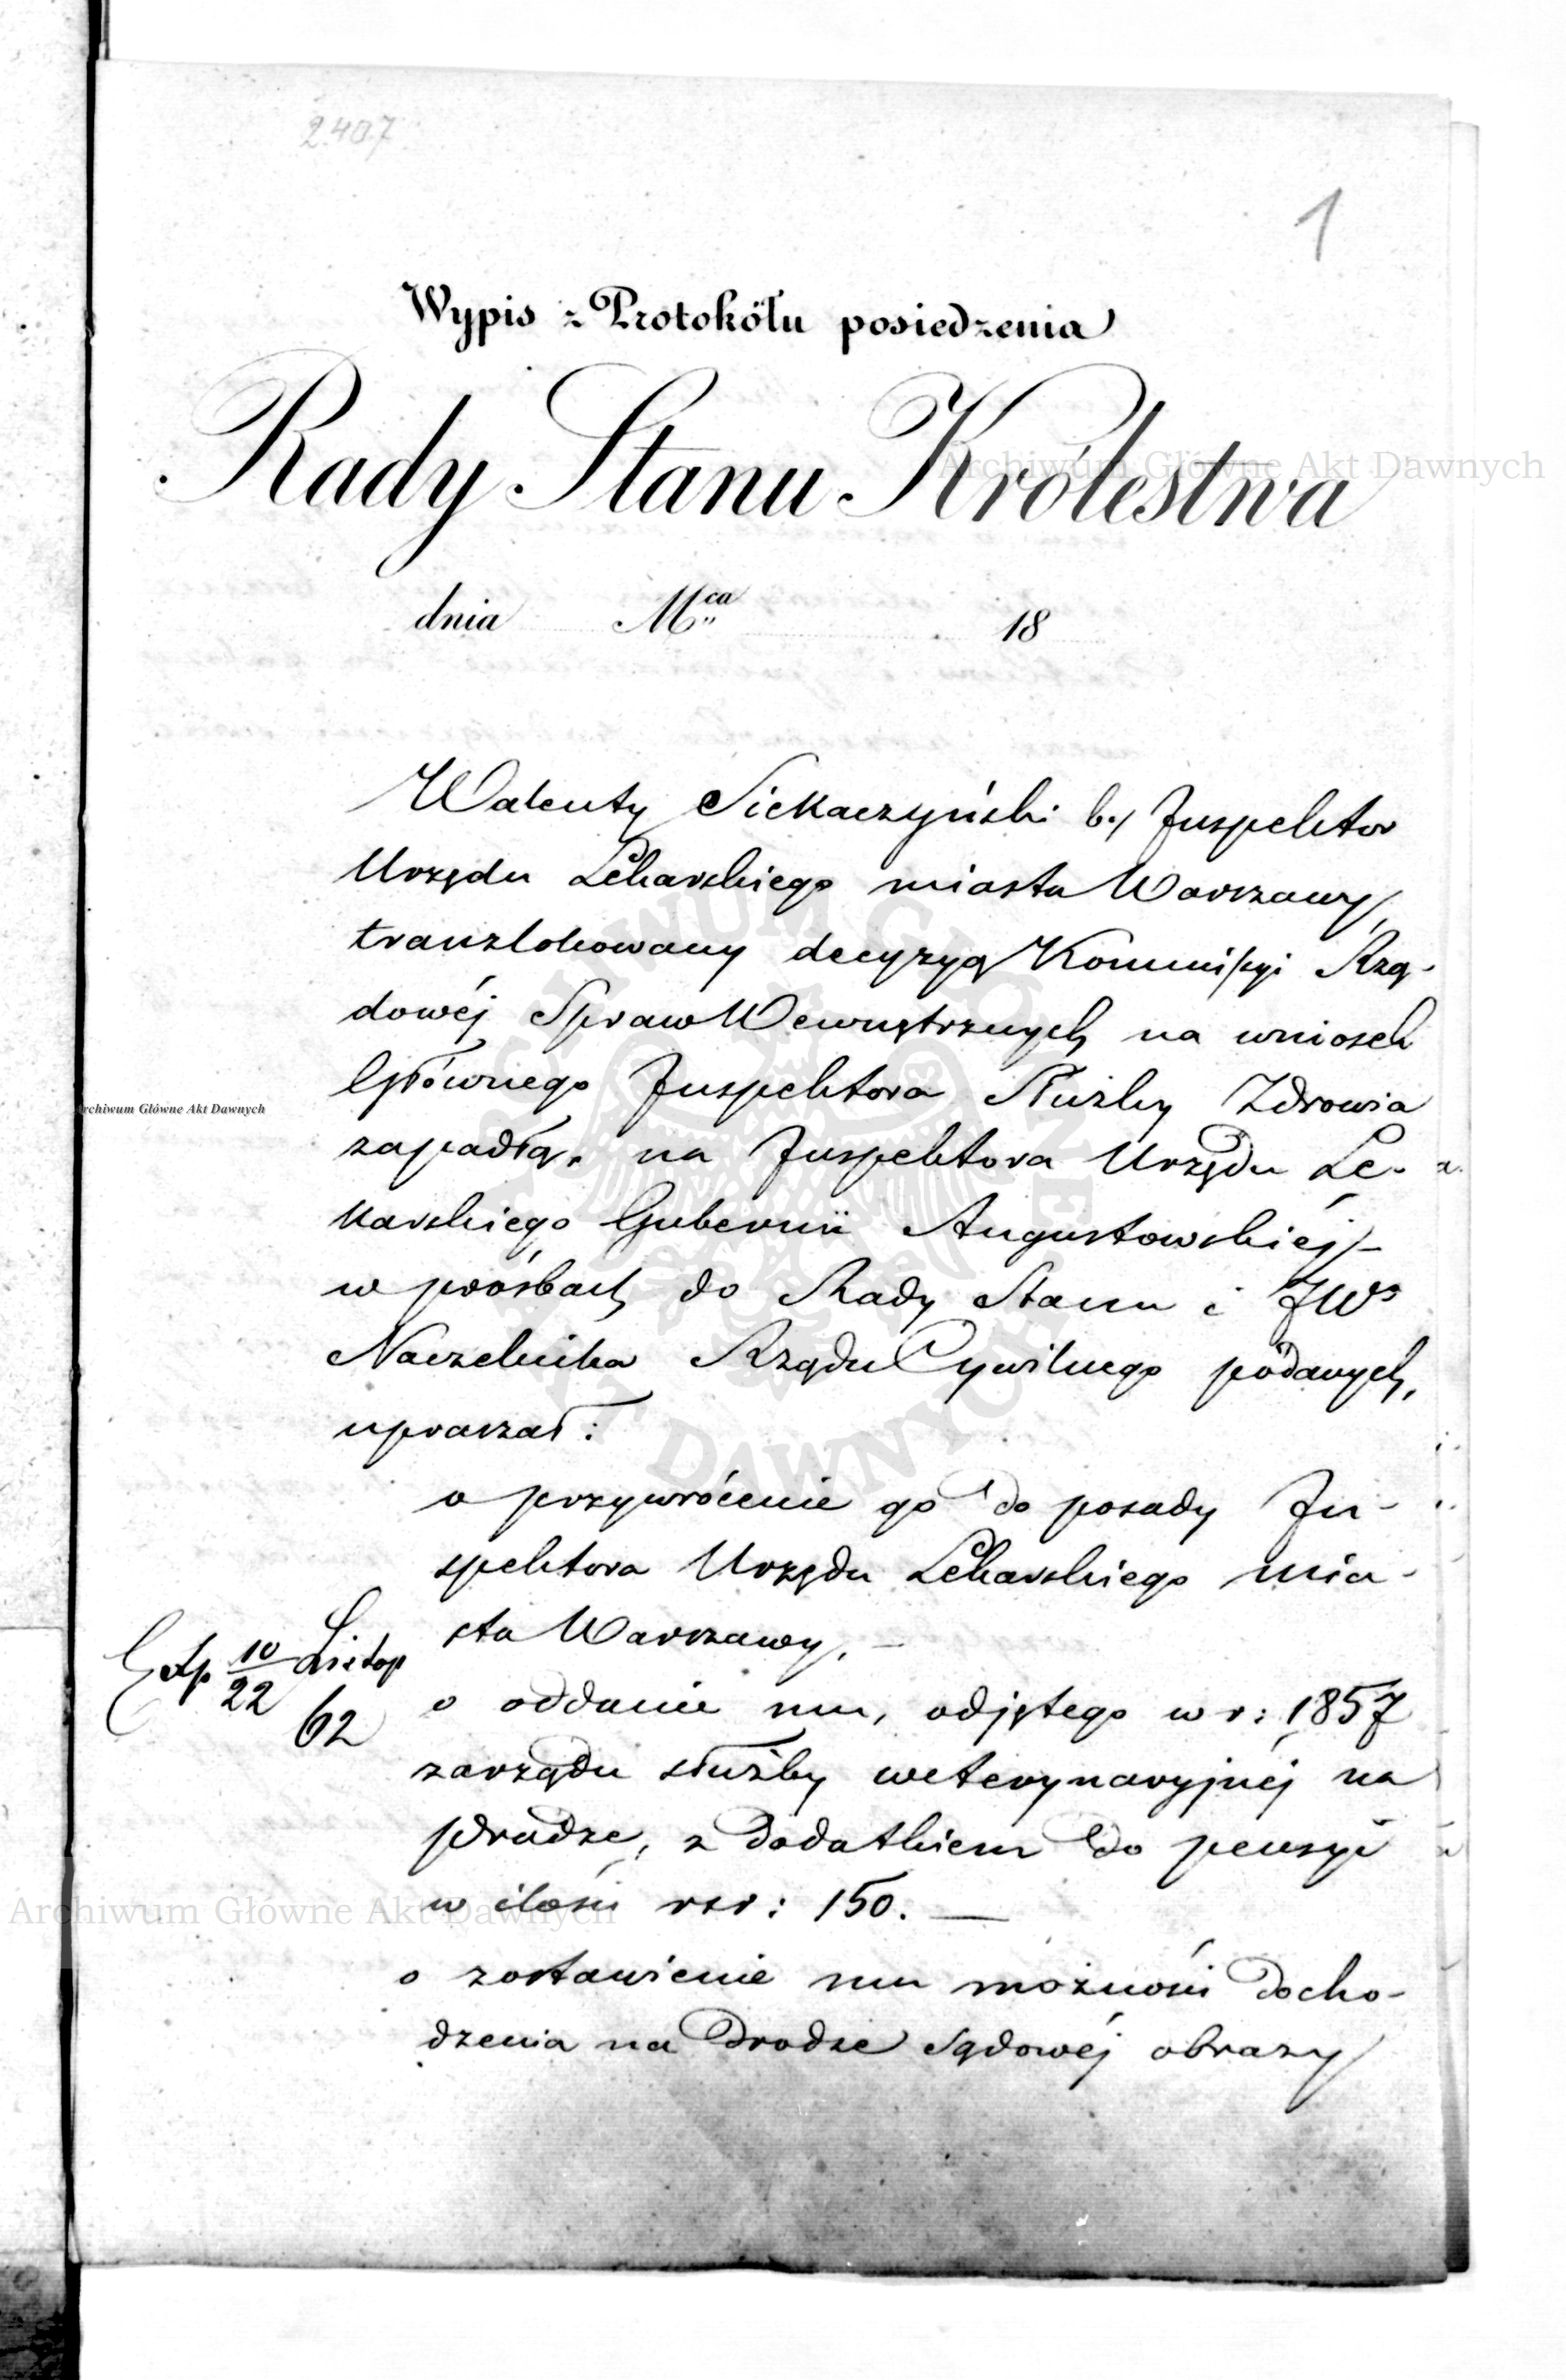 2407
1
Wypis z Protokółu posiedzenia
Rady Stanu Królestwa
dnia Mca 18
Walenty Siekaczyński b. Inspektor
Urzędu Lekarskiego miasta Warszawy,
translokowany decyzyą Kommissyi Rzą-
dowéj Spraw Wewnętrznych na wniosek
Głównego Inspektora Służby Zdrowia
zapadłą, na Inspektora Urzędu Le-
karskiego Gubernii Augustowskiéj –
w prośbach do Rady Stanu i JWo
Naczelnika Rządu Cywilnego podanych,
upraszał:
o przywrócenie go do posady In-
spektora Urzędu Lekarskiego mia-
sta Warszawy. –
Exp 10/22 Listop
62
o oddanie mu, odjętego w r: 1857
zarządu służby weterynaryjnéj na
Pradze, z dodatkiem do pensyi
w ilości rsr: 150. —
o zostawienie mu możności docho-
dzenia na drodze sądowéj obrazy
Archiwum Główne Akt Dawnych
Archiwum Główne Akt Dawnych
Archiwum Główne Akt Dawnych
ARCHIWUM GŁÓWNE AKT DAWNYCH